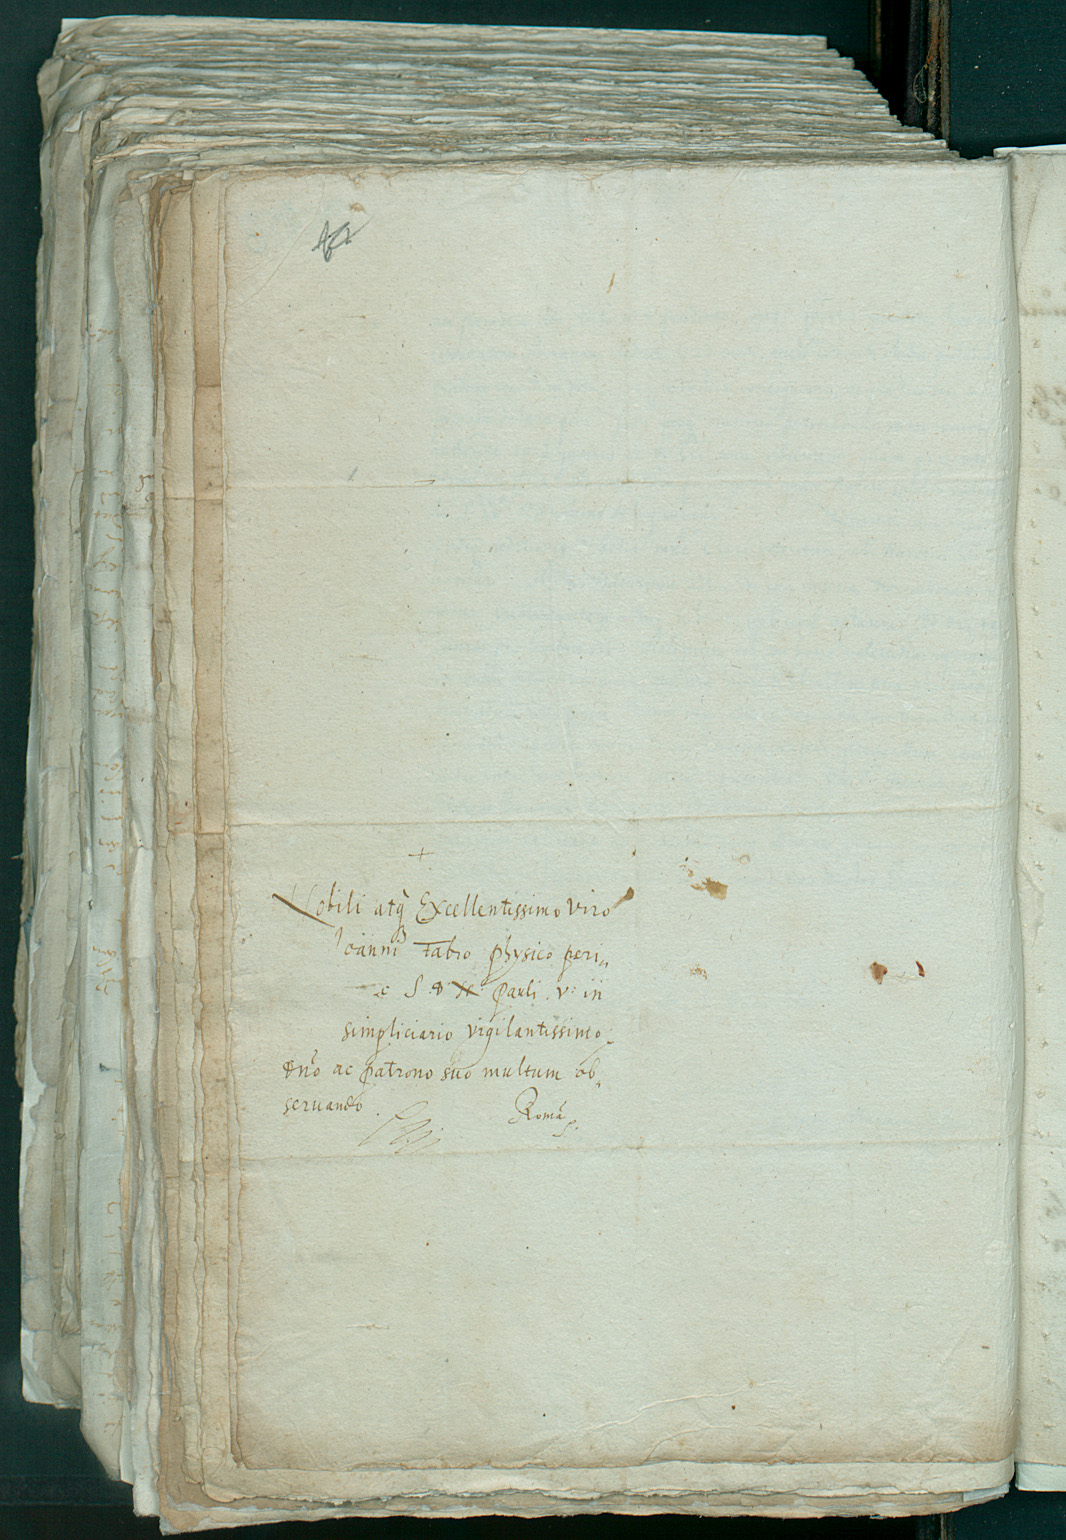 +
Nobili atq₃ Excellentissimo Viro
Ioanni Fabro physico peri,,
S D N pauli v:
simpliciario vigilantissimo
dno ac patrono suo multum ob,,
seruando. Romã